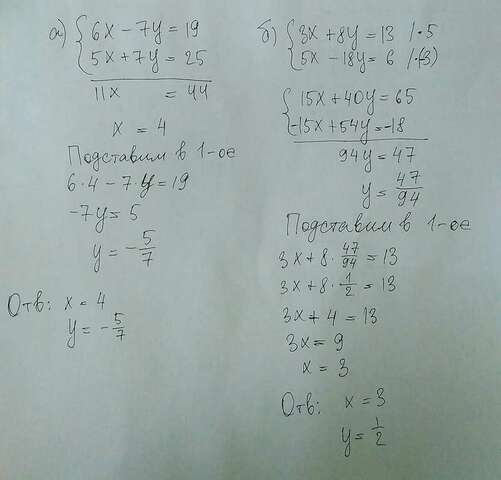 а) { 6x - 7y = 19
5x + 7y = 25
11x = 44
x = 4
Подставим в 1-ое
6·4 - 7·y = 19
-7y = 5
y = -5/7
Отв: x = 4
y = -5/7
б) { 3x + 8y = 13 /·5
5x - 18y = 6 /·(-3)
{ 15x + 40y = 65
-15x + 54y = -18
94y = 47
y = 47/94
Подставим в 1-ое
3x + 8·47/94 = 13
3x + 8·1/2 = 13
3x + 4 = 13
3x = 9
x = 3
Отв: x = 3
y = 1/2